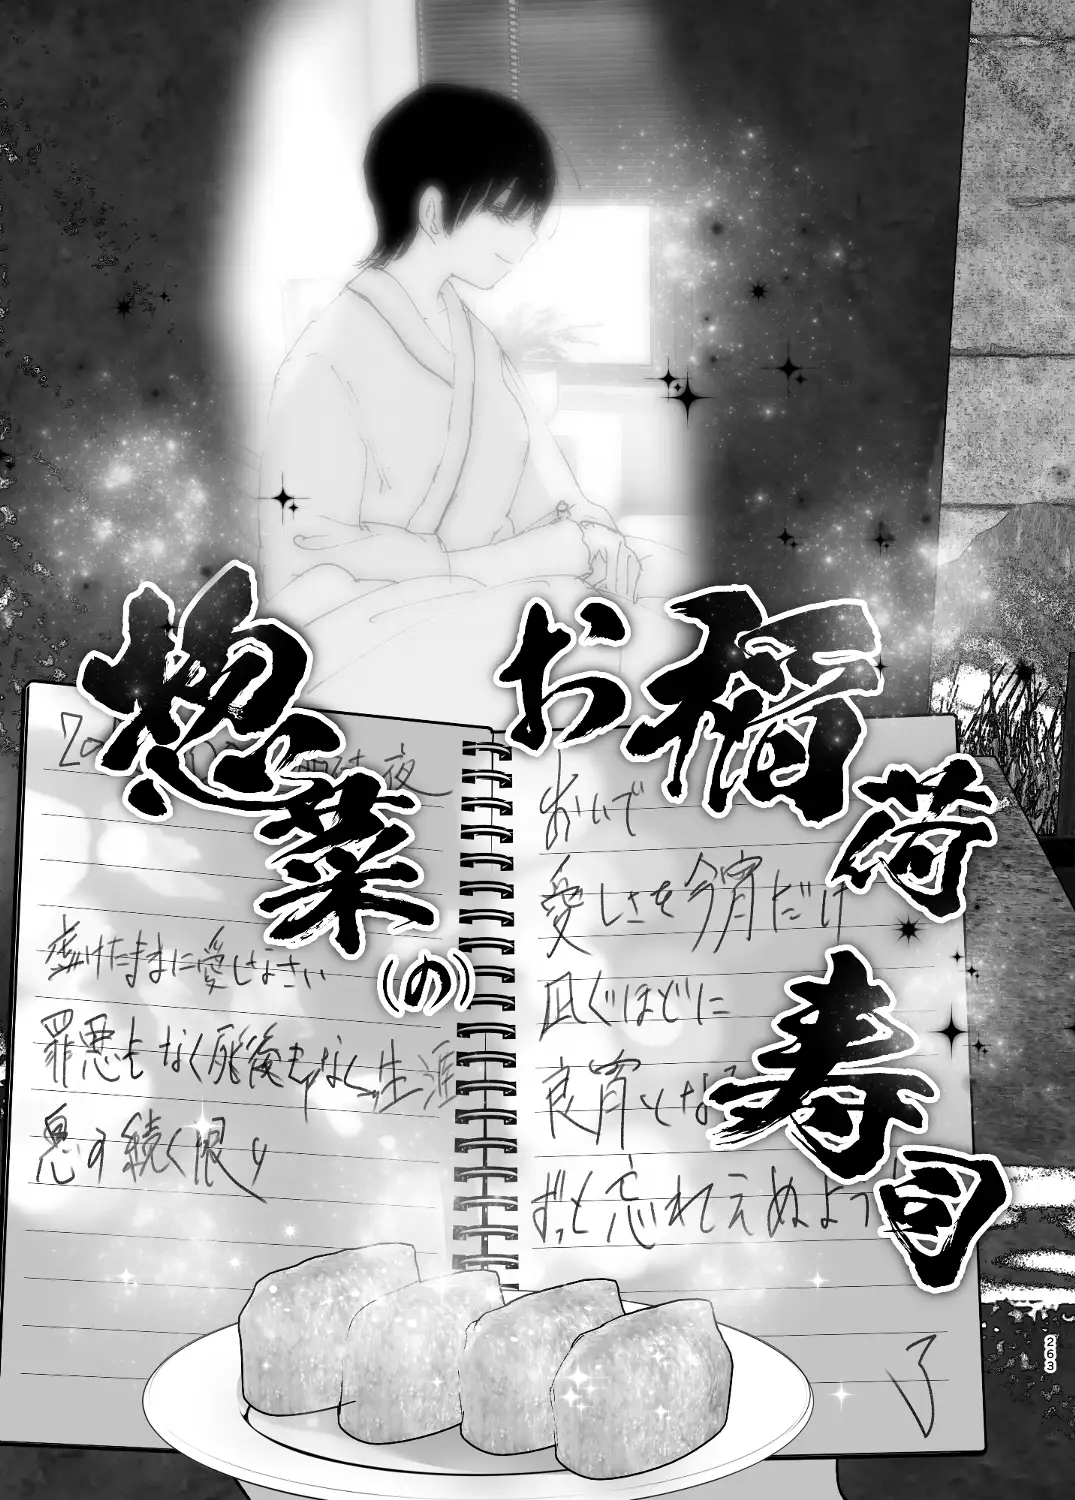 お稲荷寿司
惣菜(の)
おいで
愛しさを今宵だけ
凪ぐほどに
良宵とな
ずっと忘れてえぬよう
了
夜
虚けたままに愛しなさい
罪悪もなく死後もなく生涯
息の続く限り
263